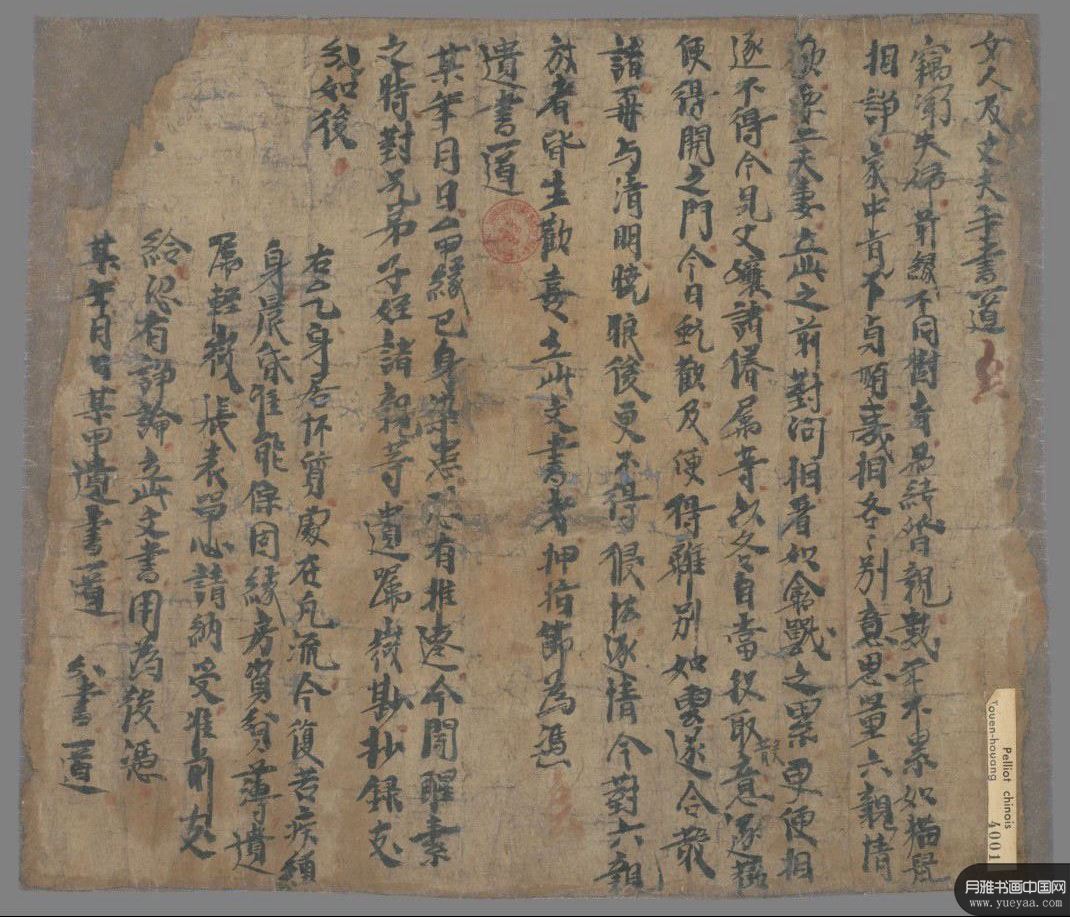 女人及丈夫手書一道
竊窮夫婦前緣不同樹者易結婚親數年不累如猫鼠
相諍家中肯不貞順義相各各別意思量六親情
夫妻立此之前對問相看如禽獸之累更便相
逐不得今見父孃諸眷屬等以各自當投取散意逐
便得開之門今日甑歡及便得離別如雲遂合散
諸再与清明曉眼後更不得侵㤆逐情今對六親
放者皆生歡喜立此文書者押指節為憑
遺書一道
某年月日厶甲緣已身染患恐有推遷今聞醒素
之時對兄弟子侄諸親等遺囑微勘抄錄支
分如後
右厶乙身居怀質處在凡流今復苦疾纏
身晨昏准能保固緣房資貧薄遺
屬輕微張表單心請納受准前支
給恐有諍論立此文書用為後憑
某年月日某甲遺書一道 分書一道
Pelliot chinois
Touen-houang
4001
月雅书画中国网
www.yueyaa.com